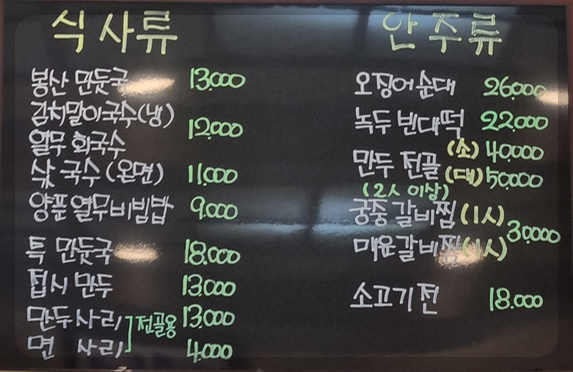 식사류
봉산 만둣국 13,000
김치말이국수(냉)
12,000
열무 회국수
삿국수 (온면) 11,000
양푼 열무비빔밥 9,000
특 만둣국 18,000
접시 만두 13,000
만두사리 13,000
전골용
면 사리 4,000
안주류
오징어순대 26,000
녹두 빈대떡 22,000
(소) 40,000
만두 전골 (대) 50,000
(2人 이상)
궁중 갈비찜 (1人)
30,000
매운갈비찜 (1人)
소고기전 18,000